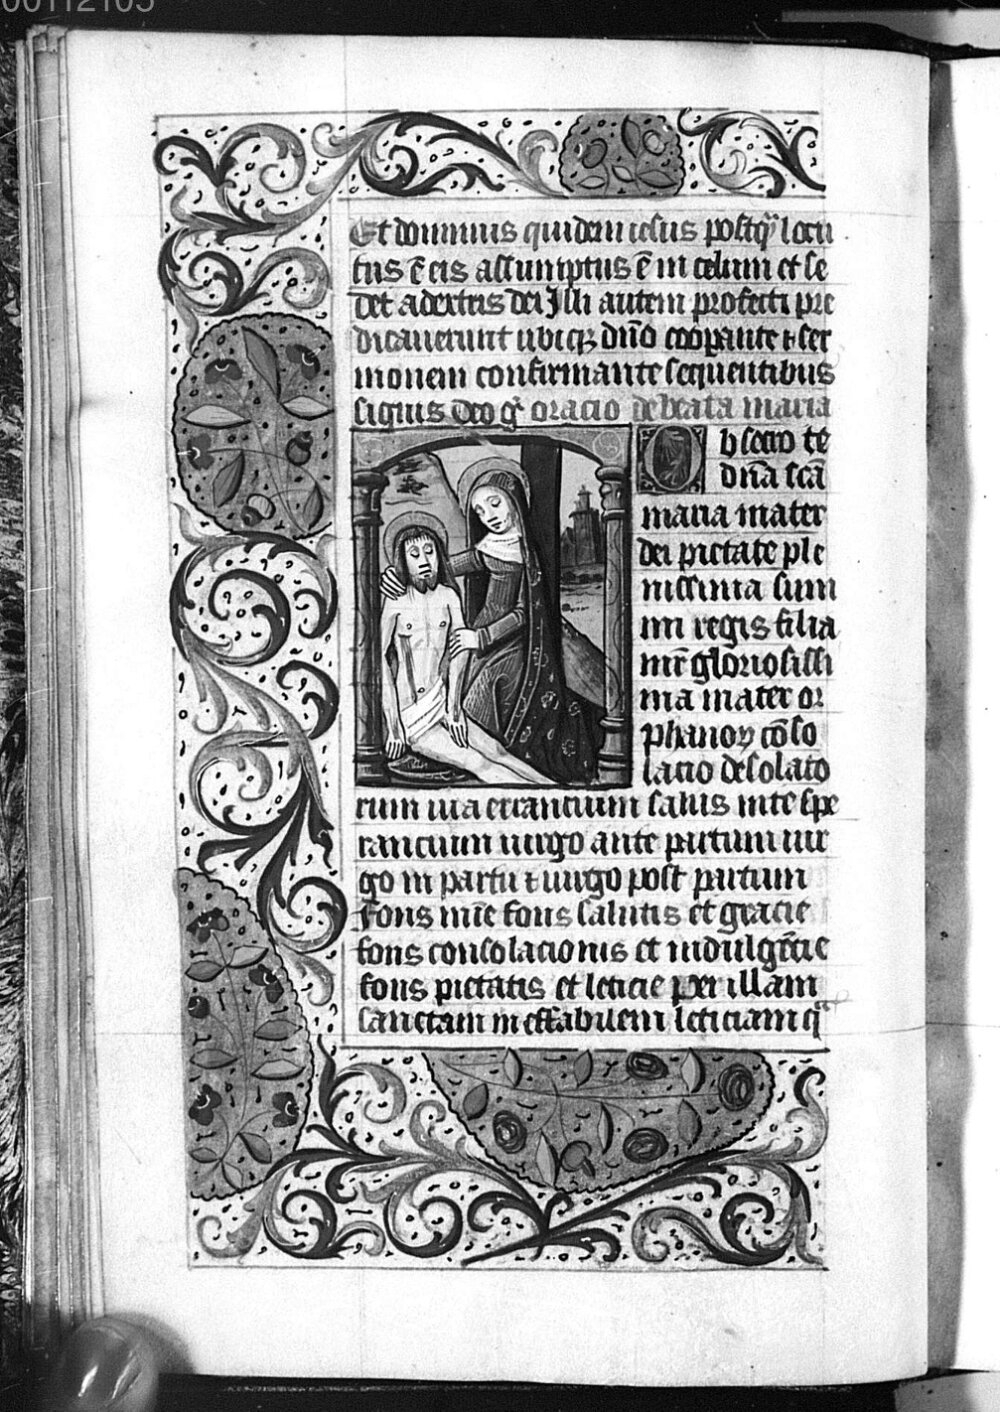 00112105
Et dominus quidem iesus postq̃ locu
tus ẽ eis assumptus ẽ in celum et se
det a dextris dei Illi autem profecti pre
dicauerunt ubiqꝫ dño coopante ⁊ ser
monem confirmante sequentibus
signis Deo gr̃ oracio de beata maria
Obsecro te
dña scã
maria mater
dei pietate ple
nissima sum
mi regis filia
mr̃ gloriosissi
ma mater or
phanoꝝ cõso
lacio desolato
rum uia errancium salus in te spe
rancium uirgo ante partum uir
go in partu ⁊ uirgo post partum
fons mie fons salutis et gracie
fons consolacionis et indulgẽcie
fons pietatis et leticie per illam
sanctam ineffabilem leticiam q̃